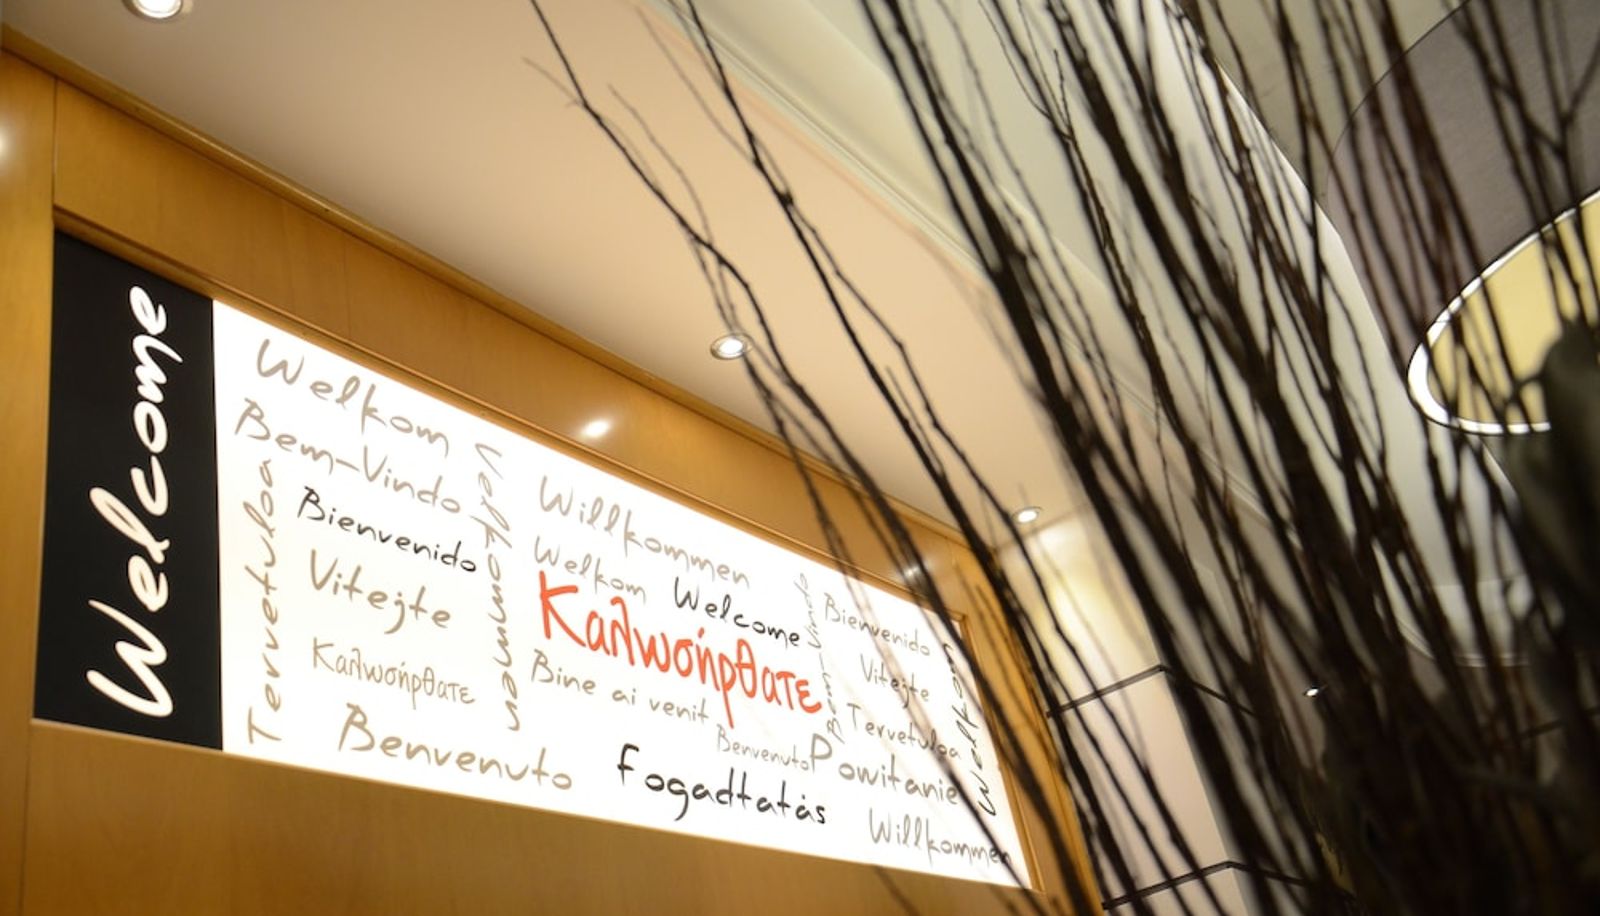 Welcome
Welkom
Bem-Vindo
Bienvenido
Vitejte
Καλωσήρθατε
Benvenuto
Tervetuloa
Velkommen
Willkommen
Welkom
Welcome
Καλωσήρθατε
Bine ai venit
Benvenuto
Fogadtatás
Bem-Vindo
Bienvenido
Vitejte
Tervetuloa
Powitanie
Willkommen
Welkom